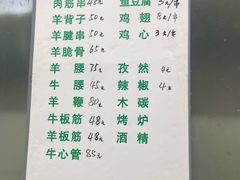 肉筋串 45元 鱼豆腐 3元/串
羊背子 50元 鸡翅 8元/串
羊腱串 50元 鸡心 3元/串
羊脆骨 65元
羊腰 75元 孜然 4元
牛腰 45元 辣椒 4元
羊鞭 80元 木碳
牛板筋 48元 烤炉
羊板筋 48元 酒精
牛心管 85元